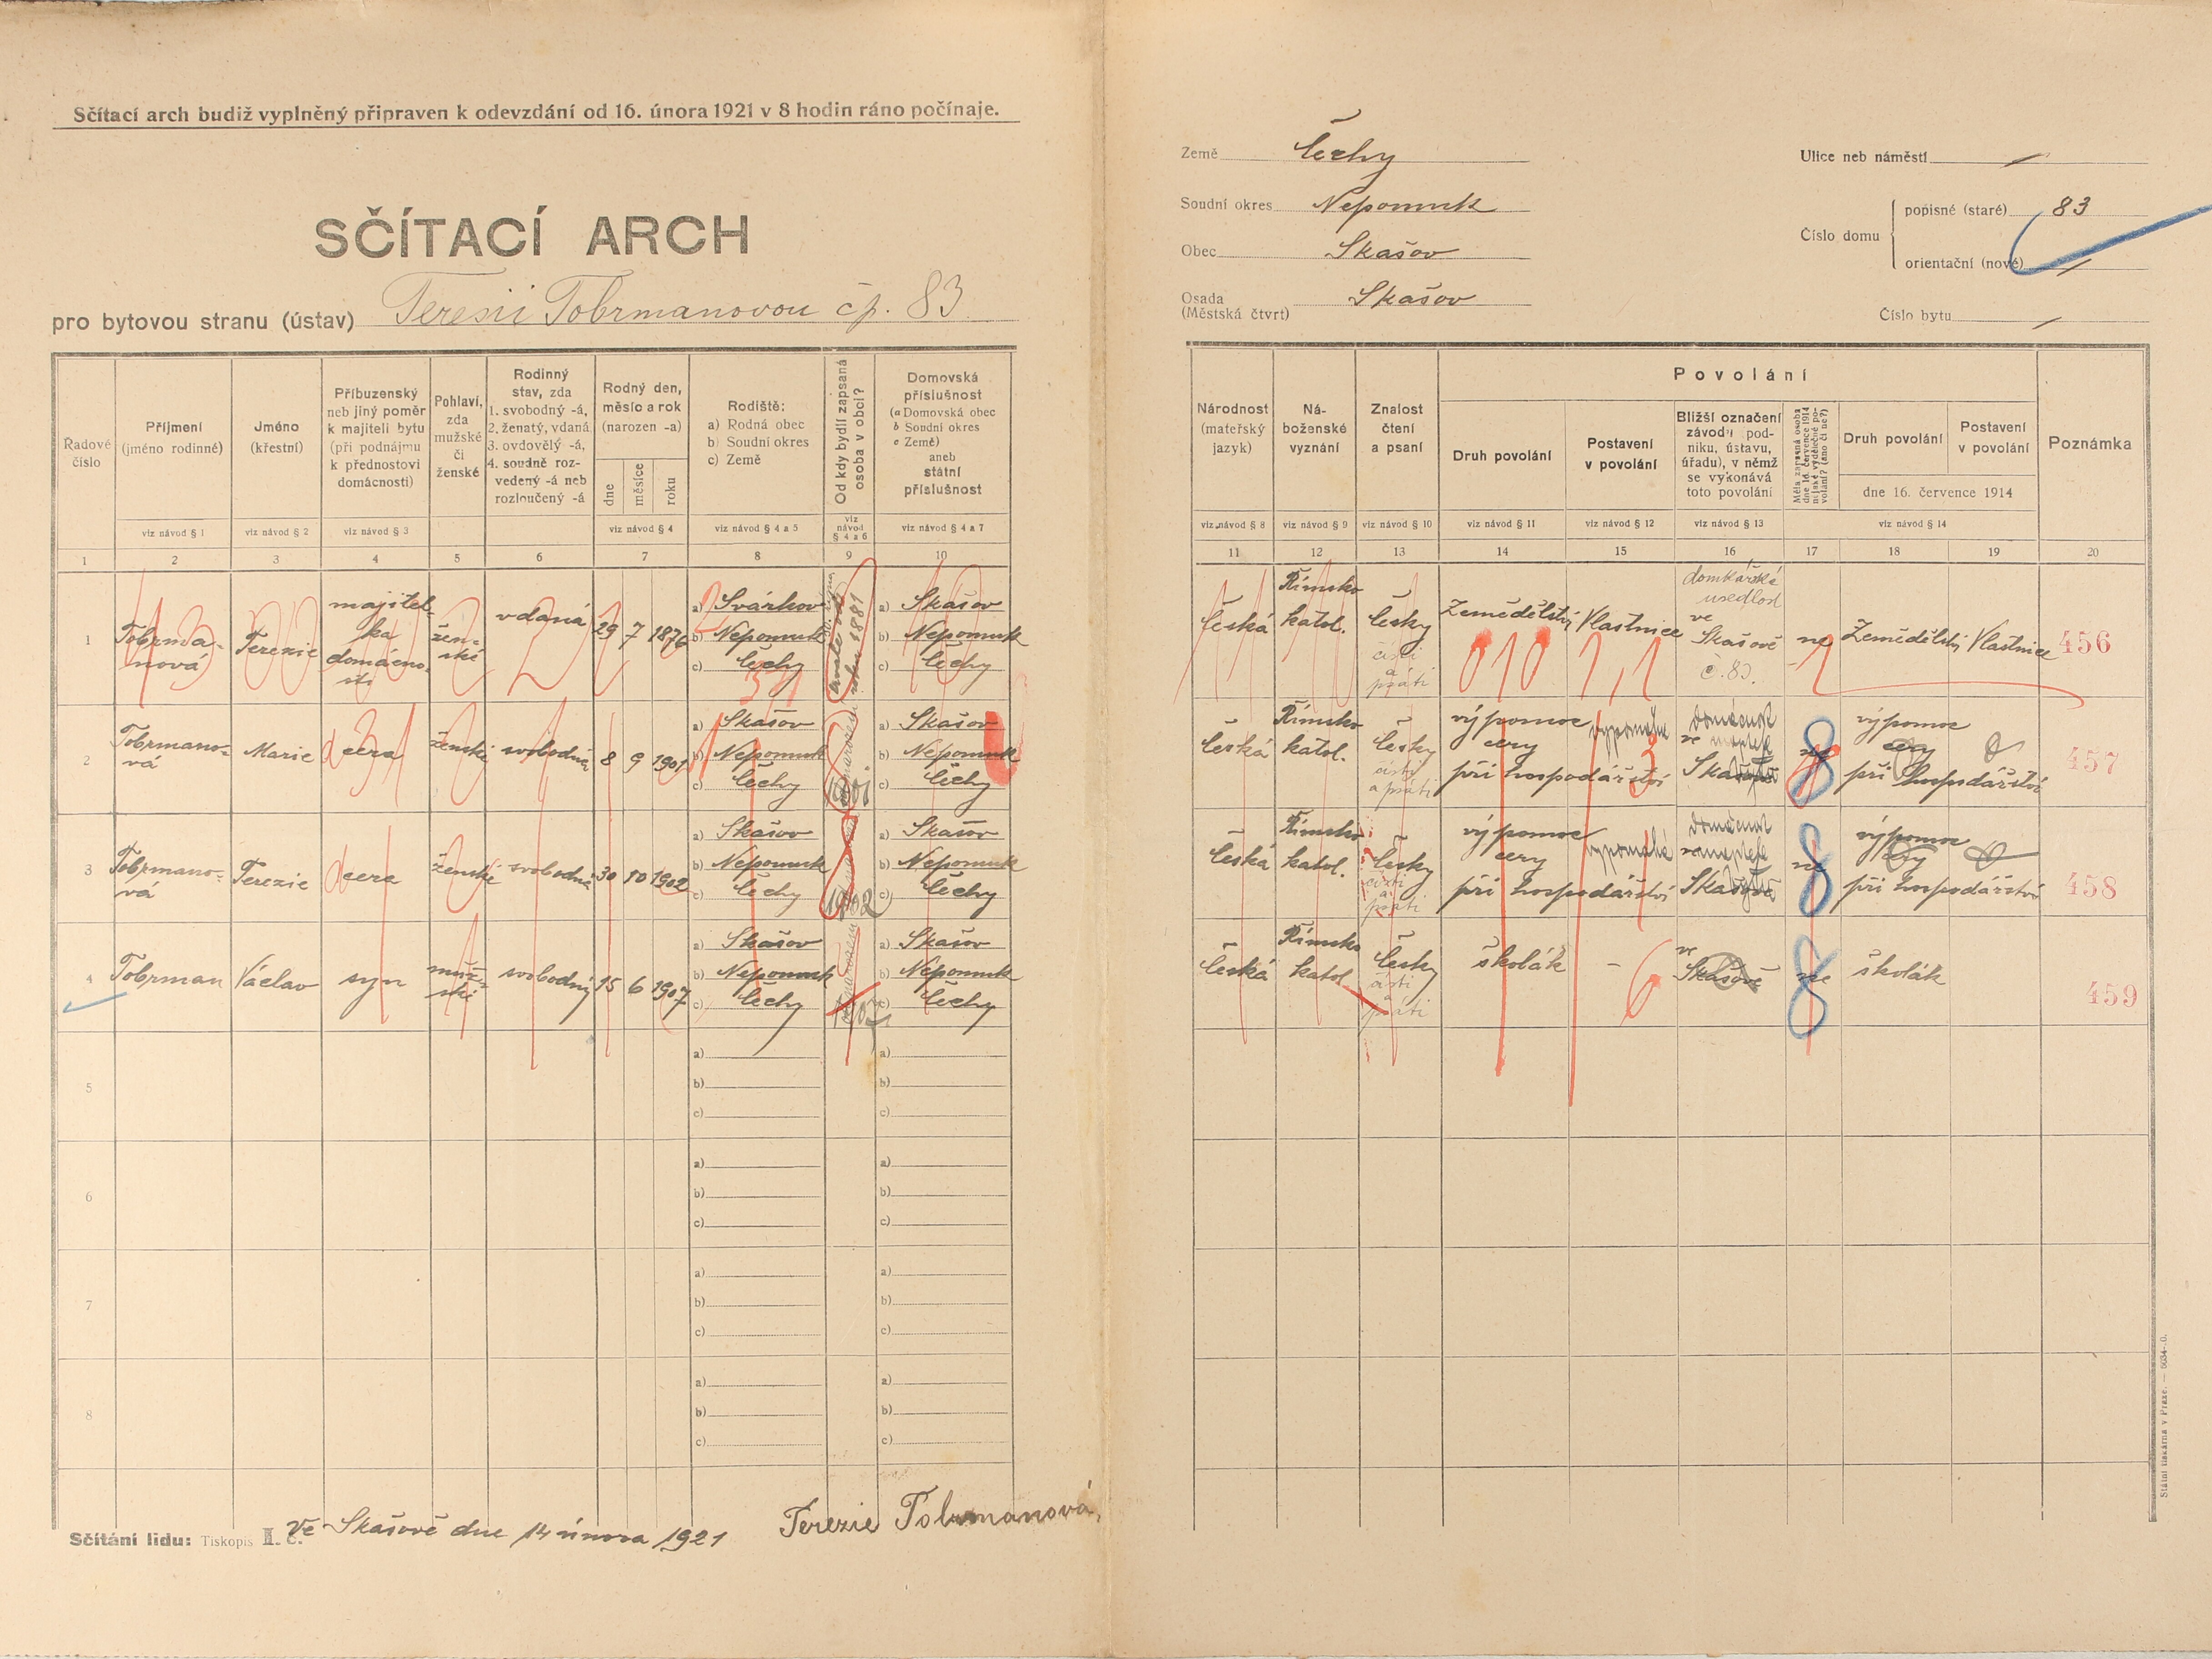 Sčítací arch budiž vyplněný připraven k odevzdání od 16. února 1921 v 8 hodin ráno počínaje.
SČÍTACÍ ARCH
pro bytovou stranu (ústav) Teresii Tobrmanovou čp. 83
Země Čechy
Soudní okres Nepomuk
Obec Skašov
Osada Skašov
(Městská čtvrť)
Ulice neb náměstí
Číslo domu
popisné (staré) 83
orientační (nové)
Číslo bytu
Řadové číslo
Příjmení (jméno rodinné)
Jméno (křestní)
Příbuzenský neb jiný poměr k majiteli bytu (při podnájmu k přednostovi domácnosti)
Pohlaví, zda mužské či ženské
Rodinný stav, zda 1. svobodný -á, 2. ženatý, vdaná 3. ovdovělý -á, 4. soudně rozvedený -á neb rozloučený -á
Rodný den, měsíc a rok (narozen -a)
dne měsíce roku
Rodiště: a) Rodná obec b) Soudní okres c) Země
Od kdy bydlí zapsaná osoba v obci?
Domovská příslušnost (a Domovská obec b Soudní okres c Země) aneb státní příslušnost
viz návod § 1 viz návod § 2 viz návod § 3 viz návod § 4 viz návod § 4 a 5 viz návod § 4 a 6 viz návod § 4 a 7
1 2 3 4 5 6 7 8 9 10
Národnost (mateřský jazyk)
Náboženské vyznání
Znalost čtení a psaní
Povolání
Druh povolání
Postavení v povolání
Bližší označení závodu podniku, ústavu, úřadu), v němž se vykonává toto povolání
Měla zapsaná osoba dne 16. července 1914 nějaké výdělečné povolání? (ano či ne?)
Druh povolání
Postavení v povolání
dne 16. července 1914
Poznámka
viz návod § 8 viz návod § 9 viz návod § 10 viz návod § 11 viz návod § 12 viz návod § 13 viz návod § 14
11 12 13 14 15 16 17 18 19 20
1 Tobrmanová Terezie majitelka domácnosti ženské vdaná 29 7 1876
a) Svárkov a) Skašov
b) Nepomuk b) Nepomuk
c) Čechy c) Čechy
česká Římsko katol. česky čísti a psáti Zemědělství Vlastnice domkářské usedlosti ve Skašově č. 83. ne Zemědělství Vlastnice 456
010 1,1
2 Tobrmanová Marie dcera ženské svobodná 8 9 1901
a) Skašov a) Skašov
b) Nepomuk b) Nepomuk
c) Čechy c) Čechy
česká Římsko katol. česky čísti a psáti výpomoc dcery při hospodářství ve Skašově ne výpomoc dcery při hospodářství 457
3 Tobrmanová Terezie dcera ženské svobodná 30 10 1902
a) Skašov a) Skašov
b) Nepomuk b) Nepomuk
c) Čechy c) Čechy
česká Římsko katol. česky čísti a psáti výpomoc dcery při hospodářství Skašově ne výpomoc dcery při hospodářství 458
4 Tobrman Václav syn mužské svobodný 15 6 1907
a) Skašov a) Skašov
b) Nepomuk b) Nepomuk
c) Čechy c) Čechy
česká Římsko katol. česky čísti a psáti školák - 6 ve Skašově ne školák 459
5 a) a)
b) b)
c) c)
6 a) a)
b) b)
c) c)
7 a) a)
b) b)
c) c)
8 a) a)
b) b)
c) c)
Sčítání lidu: Tiskopis II. č.
Ve Skašově dne 14 února 1921 Terezie Tobrmanová,
Státní tiskárna v Praze. — 5634-20.